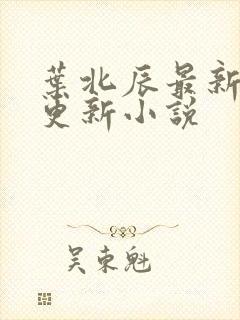 葉北辰最新
更新小說
吴東魁